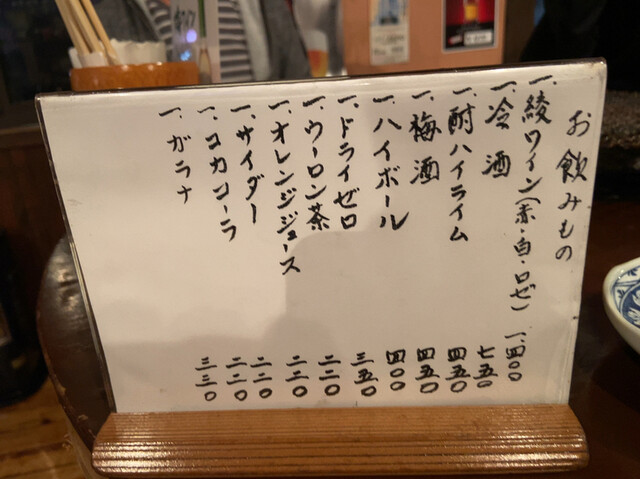 お飲みもの
一、綾ワイン(赤・白・ロゼ) 一、四〇〇
一、冷酒 七五〇
一、酎ハイライム 四五〇
一、梅酒 四五〇
一、ハイボール 四〇〇
一、ドライゼロ 三五〇
一、ウーロン茶 二二〇
一、オレンジジュース 二二〇
一、サイダー 二二〇
一、コカコーラ 二二〇
一、ガラナ 三三〇